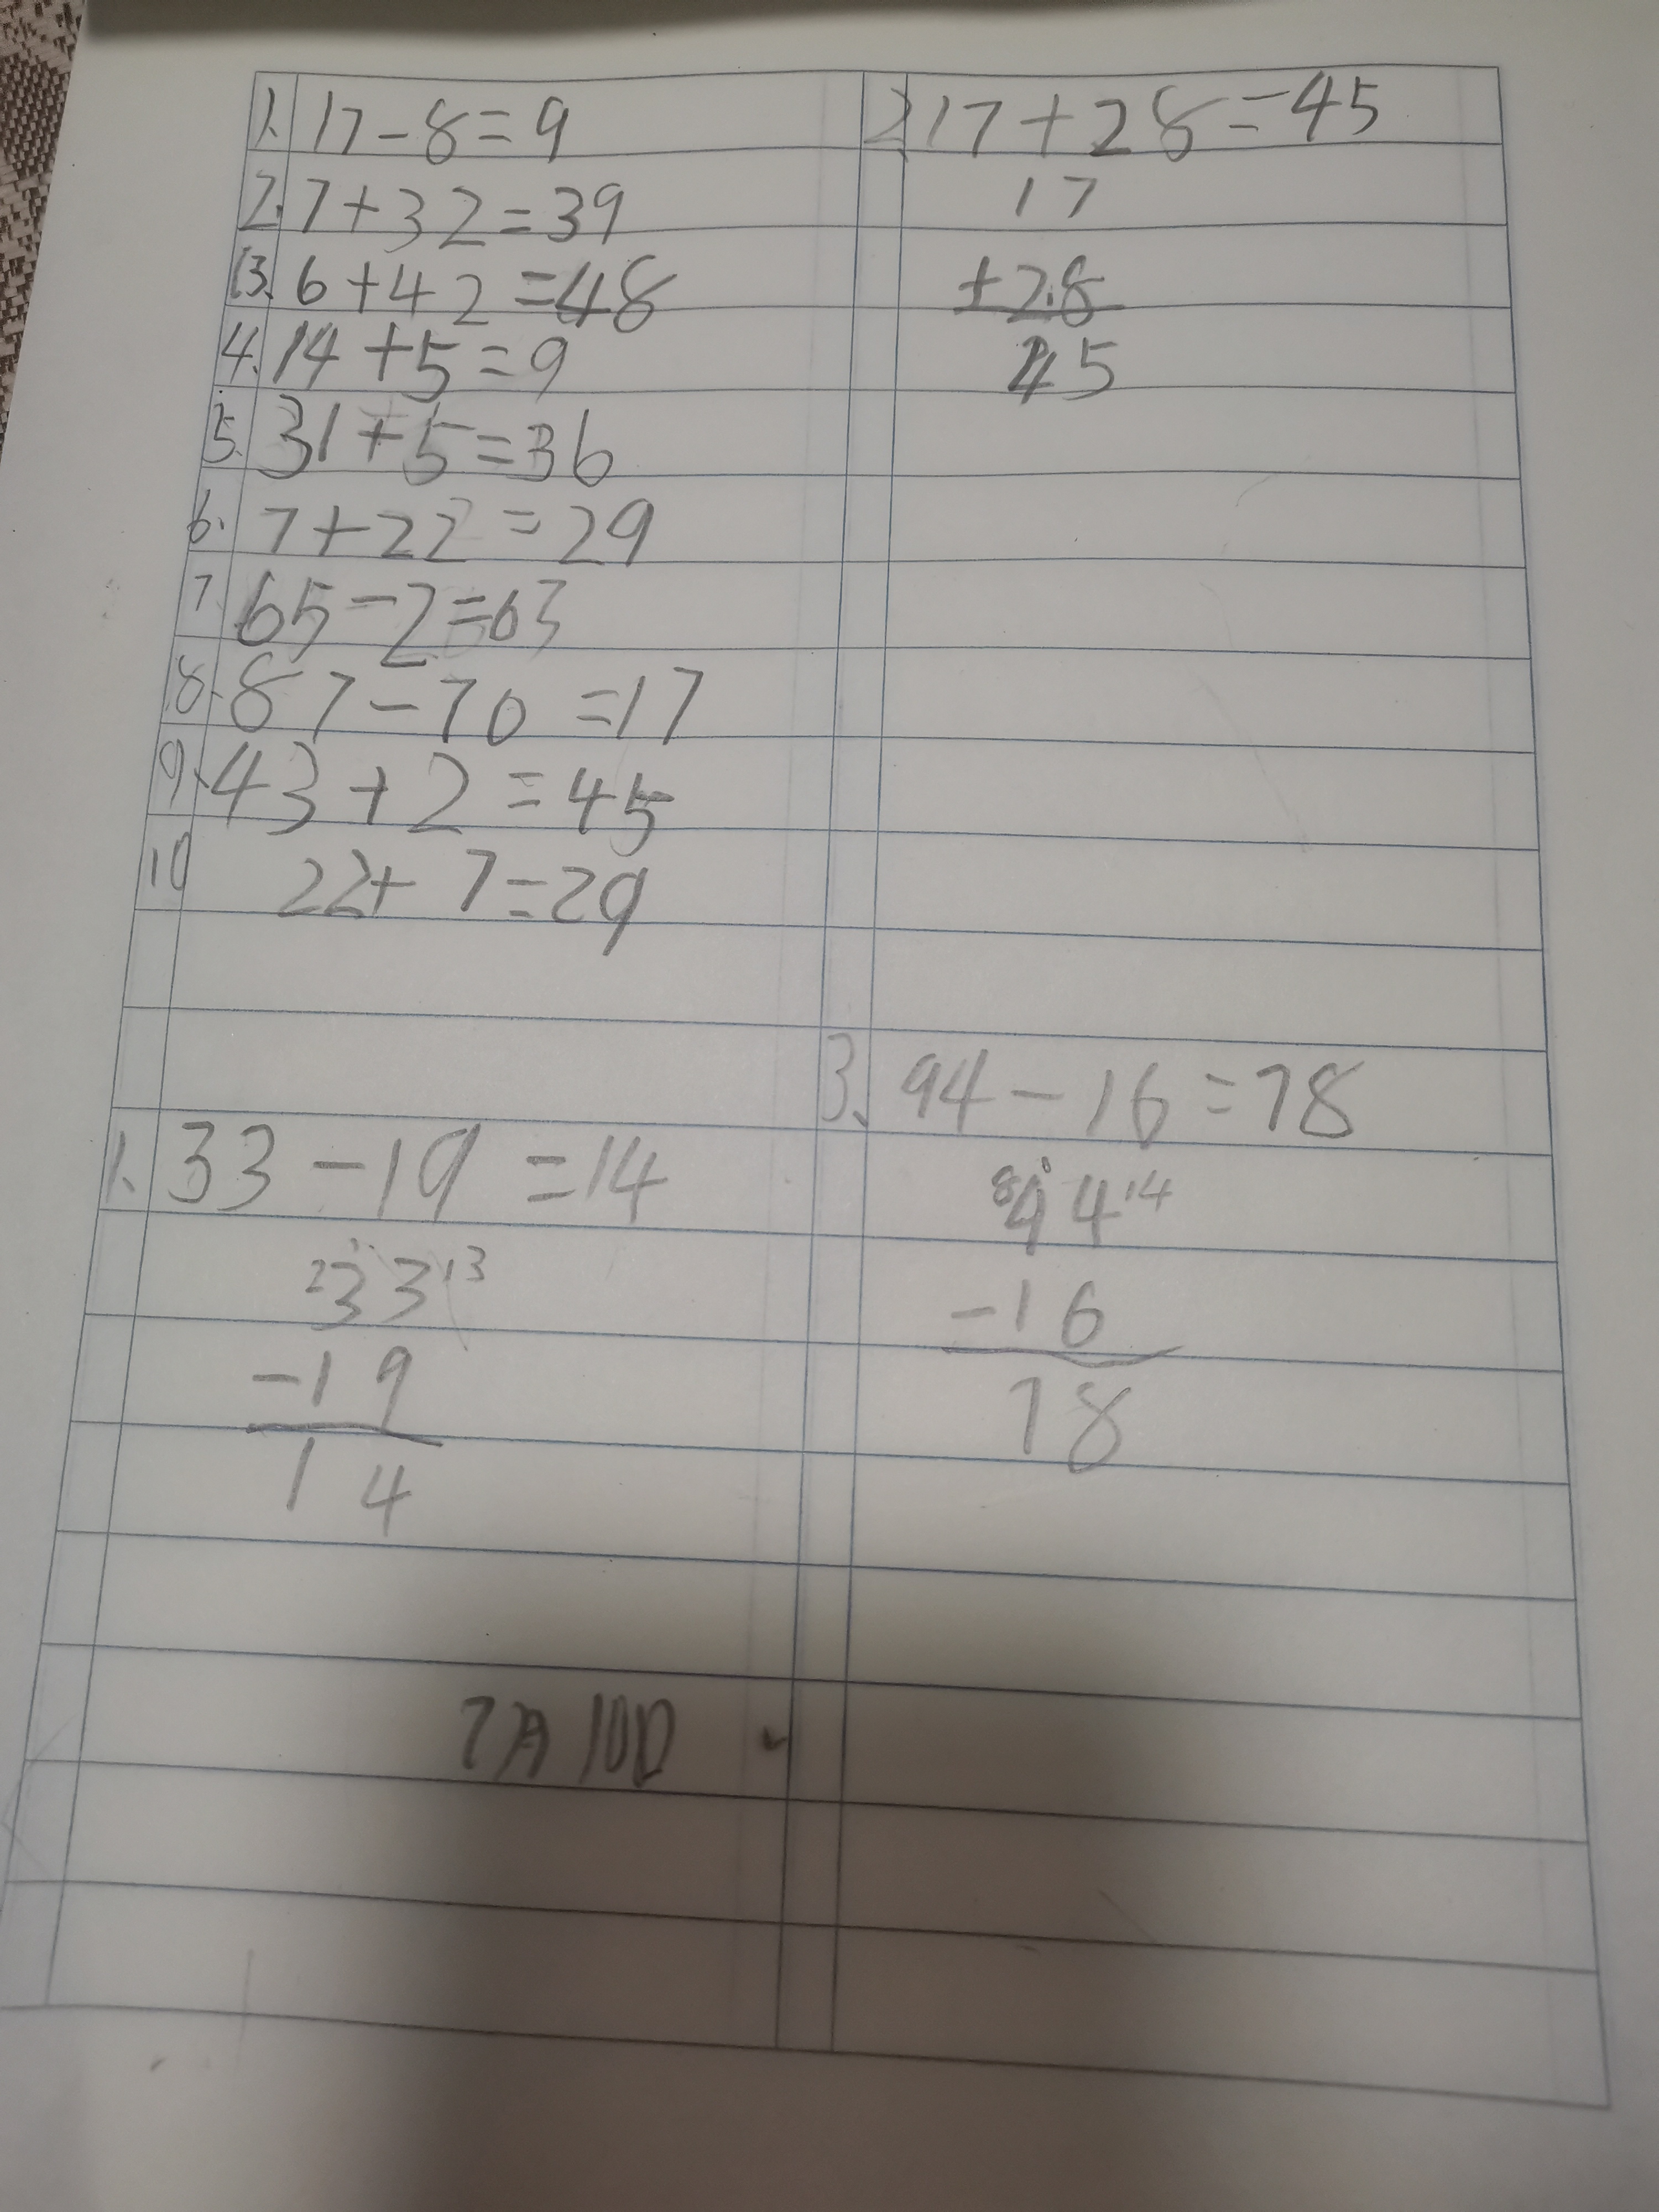 1. 17-8=9
2. 7+32=39
3. 6+42=48
4. 14+5=9
5. 31+5=36
6. 7+22=29
7. 65-2=63
8. 87-70=17
9. 43+2=45
10 22+7=29
1. 33-19=14
2 33 13
-19
14
2. 17+28=45
17
+28
45
3. 94-16=78
8 94 14
-16
78
7月10日